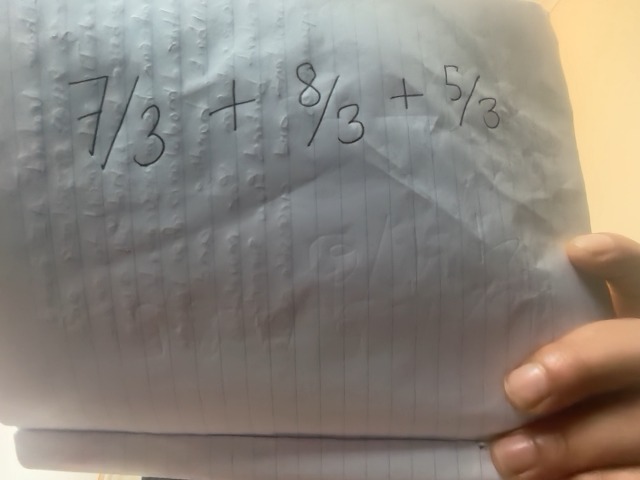 7/3 + 8/3 + 5/3